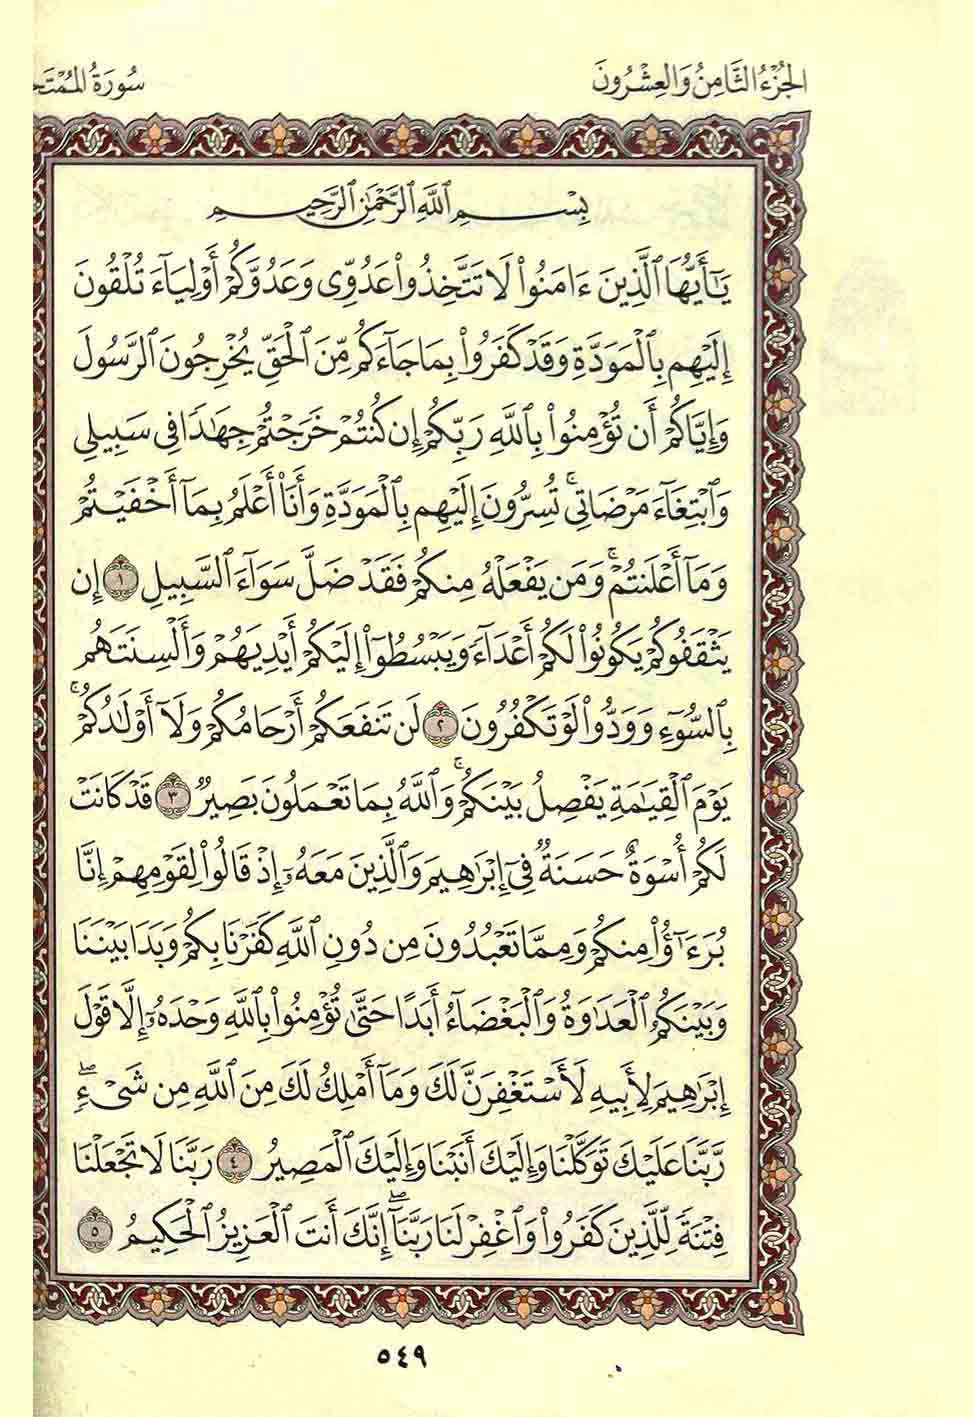 الجُزْءُ الثَّامِنُ وَالعِشْرُونَ
سُورَةُ المُمْتَحَ
بِسْمِ ٱللَّهِ ٱلرَّحْمَٰنِ ٱلرَّحِيمِ
يَٰٓأَيُّهَا ٱلَّذِينَ ءَامَنُوا۟ لَا تَتَّخِذُوا۟ عَدُوِّى وَعَدُوَّكُمْ أَوْلِيَآءَ تُلْقُونَ
إِلَيْهِم بِٱلْمَوَدَّةِ وَقَدْ كَفَرُوا۟ بِمَا جَآءَكُم مِّنَ ٱلْحَقِّ يُخْرِجُونَ ٱلرَّسُولَ
وَإِيَّاكُمْ أَن تُؤْمِنُوا۟ بِٱللَّهِ رَبِّكُمْ إِن كُنتُمْ خَرَجْتُمْ جِهَٰدًا فِى سَبِيلِى
وَٱبْتِغَآءَ مَرْضَاتِى ۚ تُسِرُّونَ إِلَيْهِم بِٱلْمَوَدَّةِ وَأَنَا۠ أَعْلَمُ بِمَآ أَخْفَيْتُمْ
وَمَآ أَعْلَنتُمْ ۚ وَمَن يَفْعَلْهُ مِنكُمْ فَقَدْ ضَلَّ سَوَآءَ ٱلسَّبِيلِ ١ إِن
يَثْقَفُوكُمْ يَكُونُوا۟ لَكُمْ أَعْدَآءً وَيَبْسُطُوٓا۟ إِلَيْكُمْ أَيْدِيَهُمْ وَأَلْسِنَتَهُم
بِٱلسُّوٓءِ وَوَدُّوا۟ لَوْ تَكْفُرُونَ ٢ لَن تَنفَعَكُمْ أَرْحَامُكُمْ وَلَآ أَوْلَٰدُكُمْ ۚ
يَوْمَ ٱلْقِيَٰمَةِ يَفْصِلُ بَيْنَكُمْ ۚ وَٱللَّهُ بِمَا تَعْمَلُونَ بَصِيرٌ ٣ قَدْ كَانَتْ
لَكُمْ أُسْوَةٌ حَسَنَةٌ فِىٓ إِبْرَٰهِيمَ وَٱلَّذِينَ مَعَهُۥٓ إِذْ قَالُوا۟ لِقَوْمِهِمْ إِنَّا
بُرَءَٰٓؤُا۟ مِنكُمْ وَمِمَّا تَعْبُدُونَ مِن دُونِ ٱللَّهِ كَفَرْنَا بِكُمْ وَبَدَا بَيْنَنَا
وَبَيْنَكُمُ ٱلْعَدَٰوَةُ وَٱلْبَغْضَآءُ أَبَدًا حَتَّىٰ تُؤْمِنُوا۟ بِٱللَّهِ وَحْدَهُۥٓ إِلَّا قَوْلَ
إِبْرَٰهِيمَ لِأَبِيهِ لَأَسْتَغْفِرَنَّ لَكَ وَمَآ أَمْلِكُ لَكَ مِنَ ٱللَّهِ مِن شَىْءٍ ۖ
رَّبَّنَا عَلَيْكَ تَوَكَّلْنَا وَإِلَيْكَ أَنَبْنَا وَإِلَيْكَ ٱلْمَصِيرُ ٤ رَبَّنَا لَا تَجْعَلْنَا
فِتْنَةً لِّلَّذِينَ كَفَرُوا۟ وَٱغْفِرْ لَنَا رَبَّنَآ ۖ إِنَّكَ أَنتَ ٱلْعَزِيزُ ٱلْحَكِيمُ ٥
٥٤٩